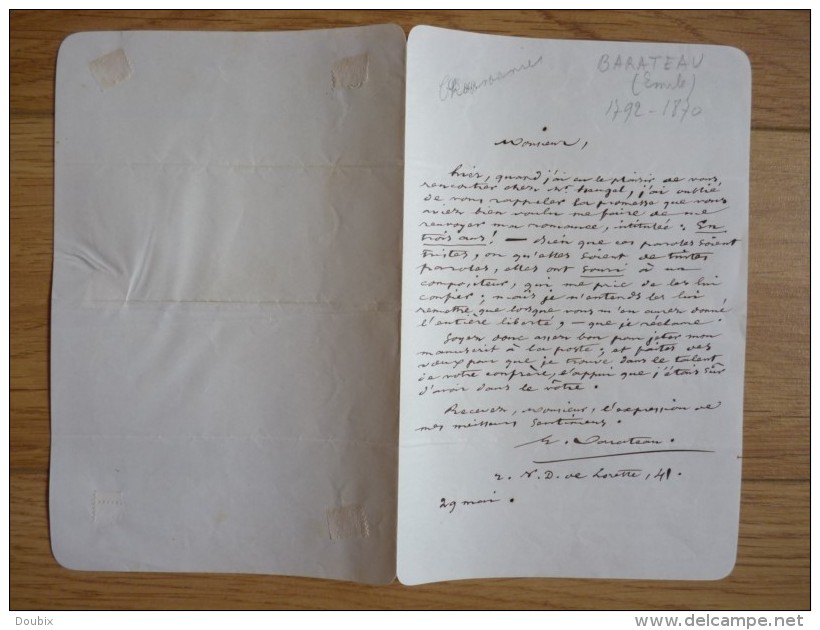 BARATEAU
(Emile)
1792-1870
Monsieur,
hier, quand j'ai eu le plaisir de vous
rencontrer chez Mr. heugel, j'ai oublié
de vous rappeler la promesse que vous
aviez bien voulu me faire de me
renvoyer ma romance, intitulée: En
trois ans! — Bien que ces paroles soient
tristes, ou qu'elles soient de tristes
paroles, elles ont souri à un
compositeur, qui me prie de les lui
confier; mais je n'entends les lui
remettre que lorsque vous m'en aurez donné
l'entière liberté, — que je réclame.
Soyez donc assez bon pour jeter mon
manuscrit à la poste; et faites des
vœux pour que je trouve dans le talent
de votre confrère, l'appui que j'étais sûr
d'avoir dans le vôtre.
Recevez, Monsieur, l'expression de
mes meilleurs sentimens.
E. Barateau.
r. N. D. de Lorette, 41.
29 mai.
Doubix
www.delcampe.net